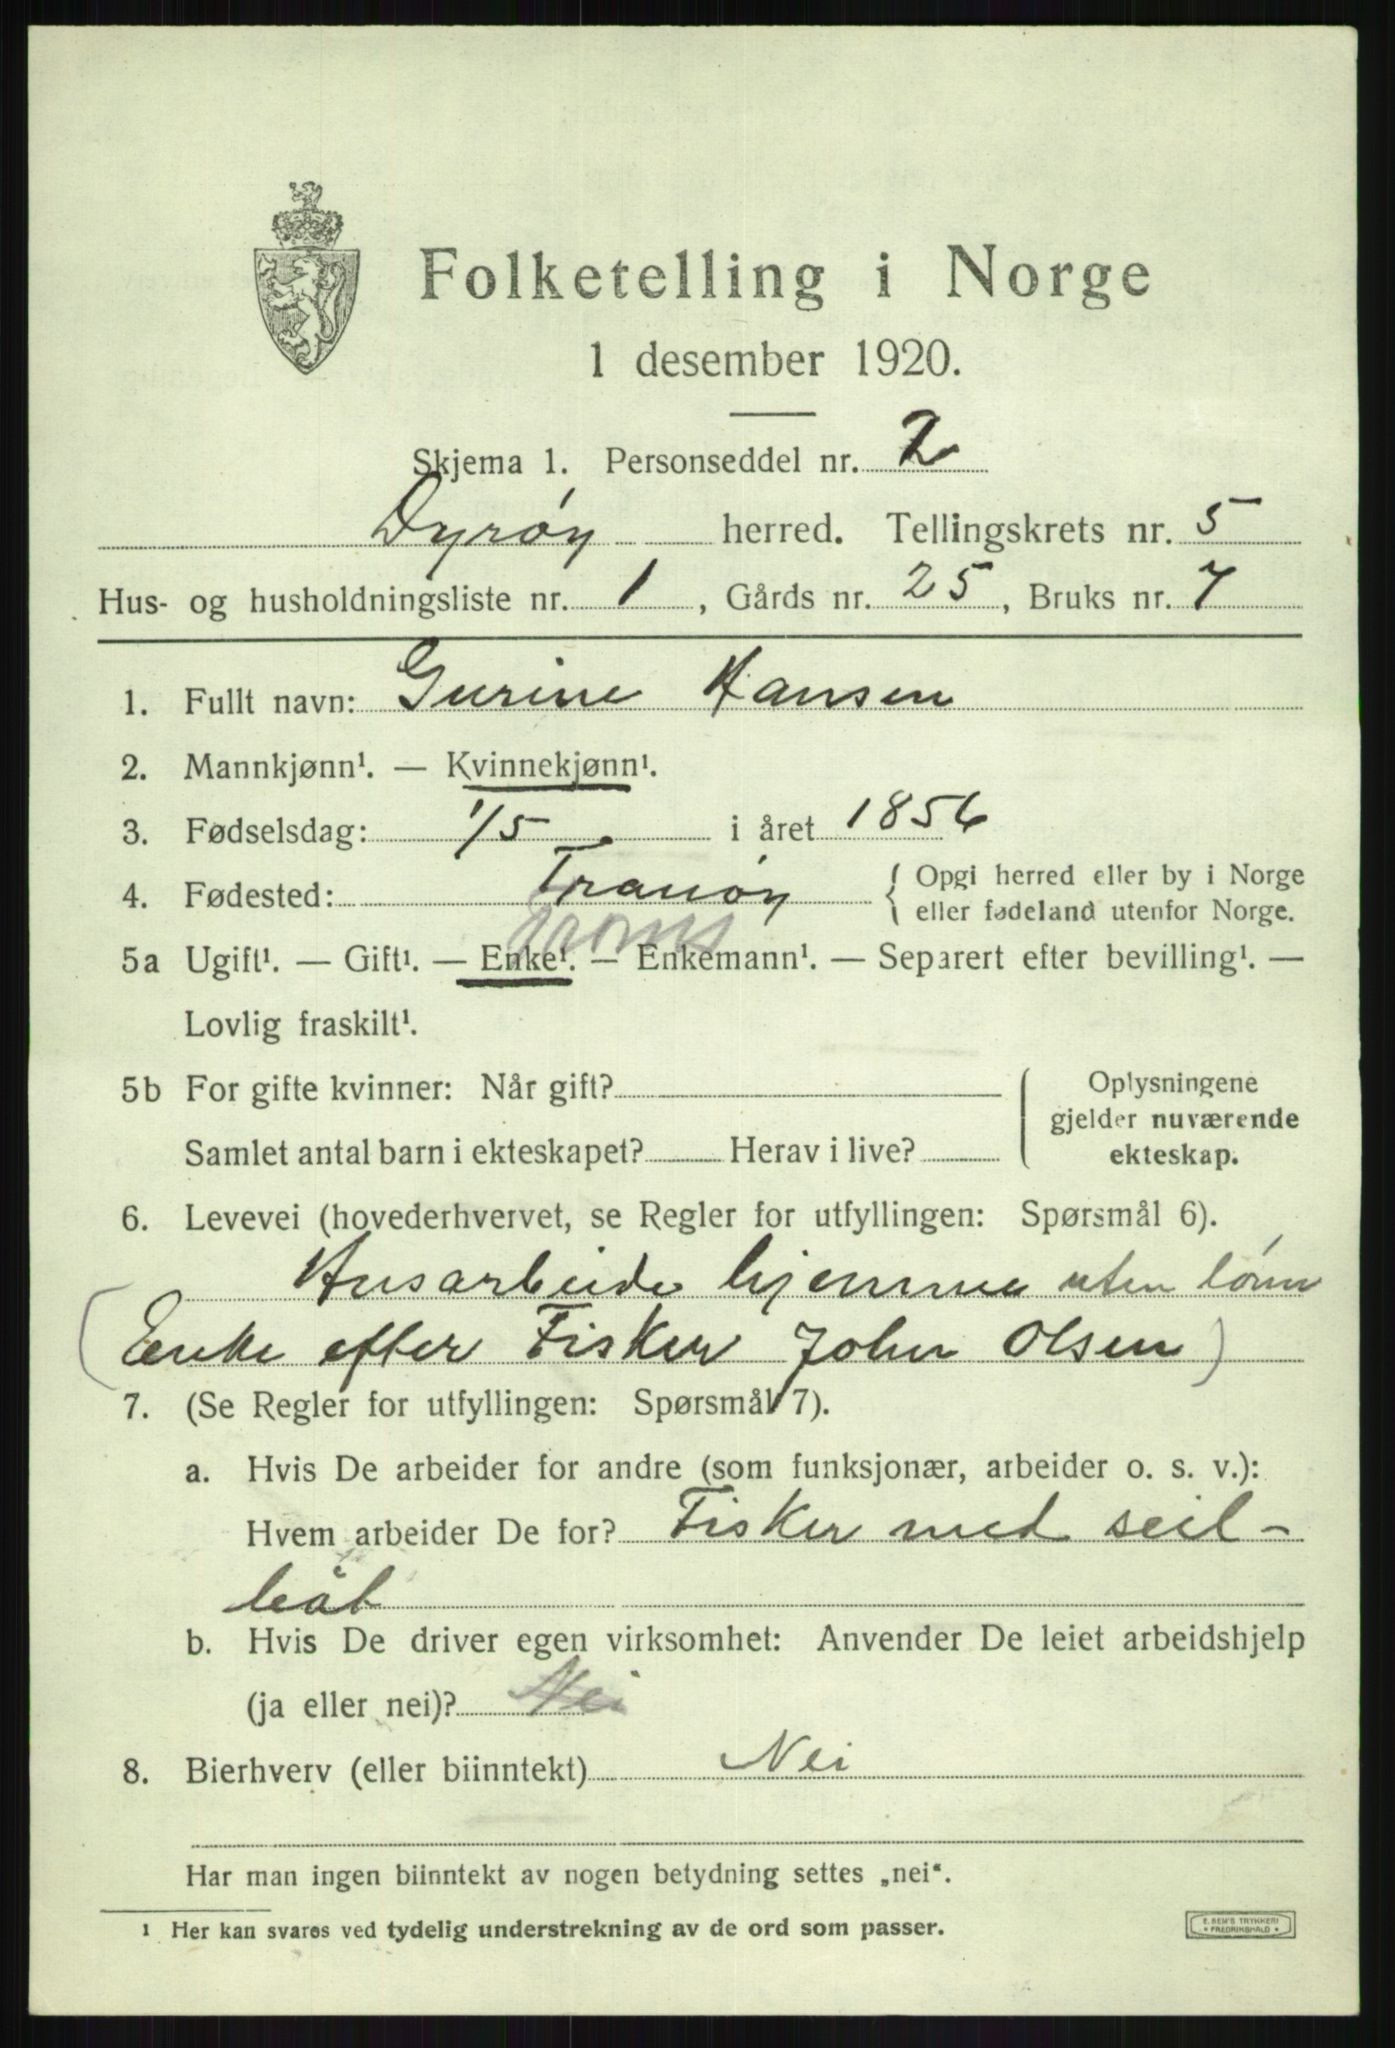 Folketelling i Norge
1 desember 1920.
Skjema 1. Personseddel nr. 2
Dyrøy herred. Tellingskrets nr. 5
Hus- og husholdningsliste nr. 1, Gårds nr. 25, Bruks nr. 7
1. Fullt navn: Gurine Hansen
2. Mannkjønn¹. — Kvinnekjønn¹.
3. Fødselsdag: 1/5 i året 1856
4. Fødested: Tranöy { Opgi herred eller by i Norge
eller fødeland utenfor Norge.
Troms
5a Ugift¹. — Gift¹. — Enke¹. — Enkemann¹. — Separert efter bevilling¹. —
Lovlig fraskilt¹.
5b For gifte kvinner: Når gift? { Oplysningene
gjelder nuværende
Samlet antal barn i ekteskapet? Herav i live? ekteskap.
6. Levevei (hovederhvervet, se Regler for utfyllingen: Spørsmål 6).
Husarbeide hjemme uten lønn
(Enke efter Fisker John Olsen)
7. (Se Regler for utfyllingen: Spørsmål 7).
a. Hvis De arbeider for andre (som funksjonær, arbeider o. s. v.):
Hvem arbeider De for? Fisker med seil-
båt
b. Hvis De driver egen virksomhet: Anvender De leiet arbeidshjelp
(ja eller nei)? Nei
8. Bierhverv (eller biinntekt) Nei
Har man ingen biinntekt av nogen betydning settes „nei“.
¹ Her kan svares ved tydelig understrekning av de ord som passer.
E. SEM'S TRYKKERI
* FREDRIKSHALD *